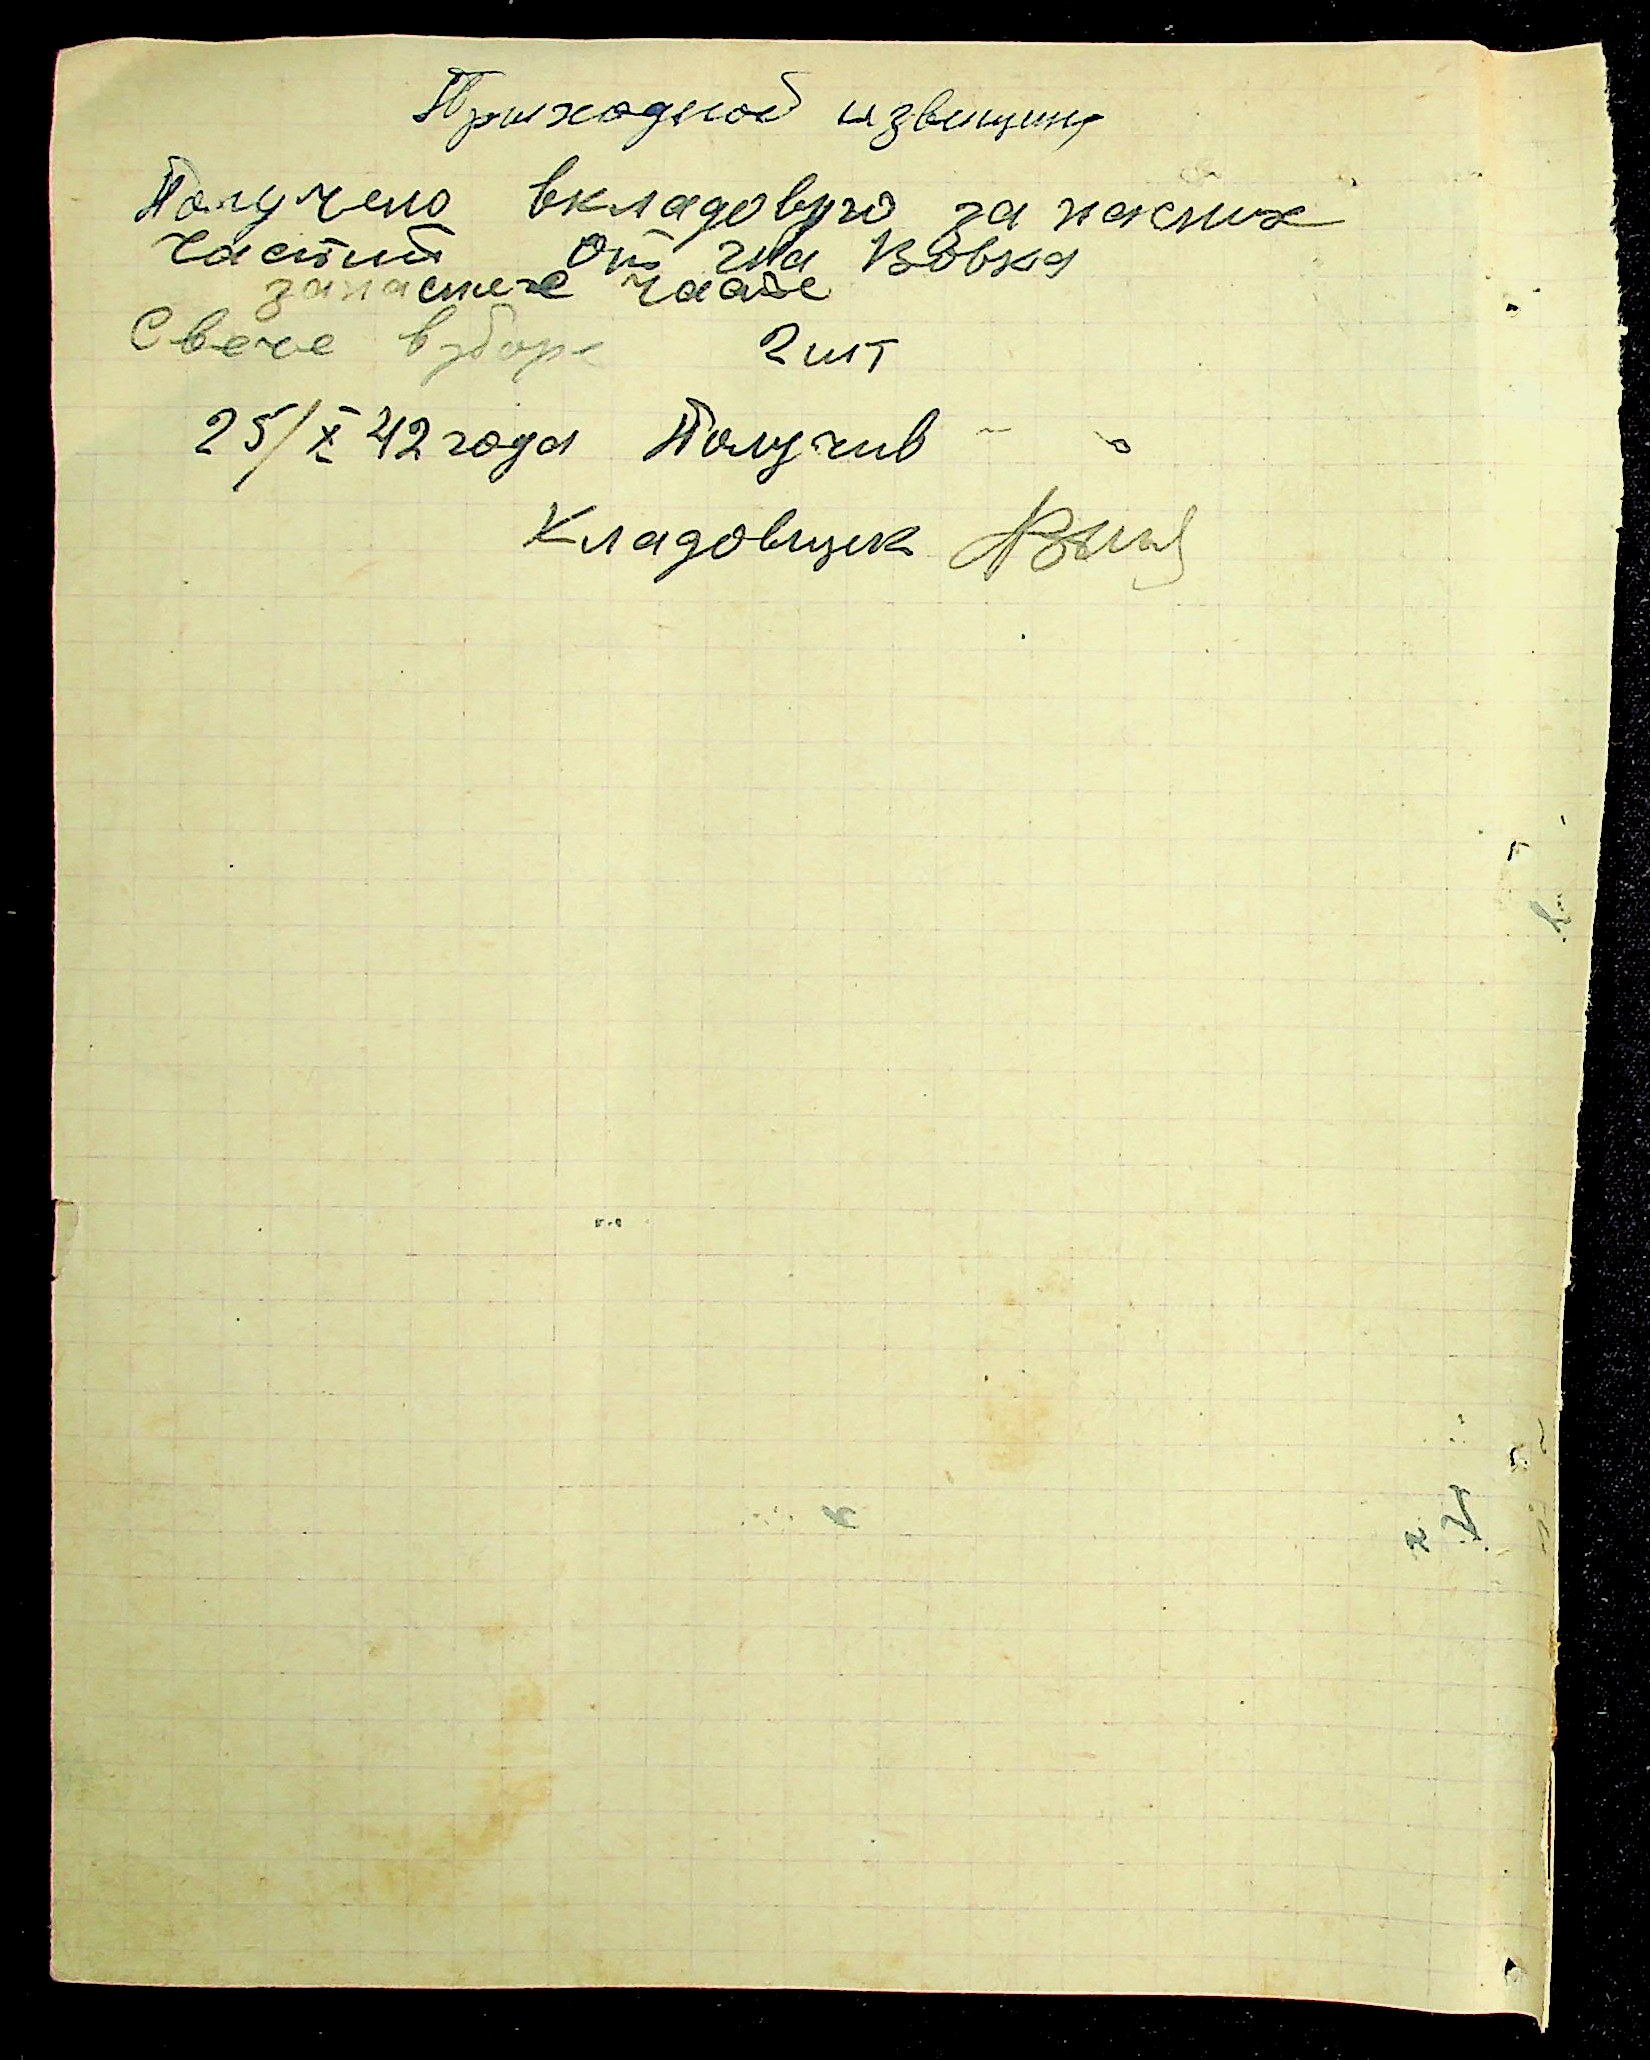 Приходной извищения
Получено вкладовую за пасних
частий от гна Вовка
запасных части
Свече в зборе 2 шт
25/X 42 года Получив
Кладовщек